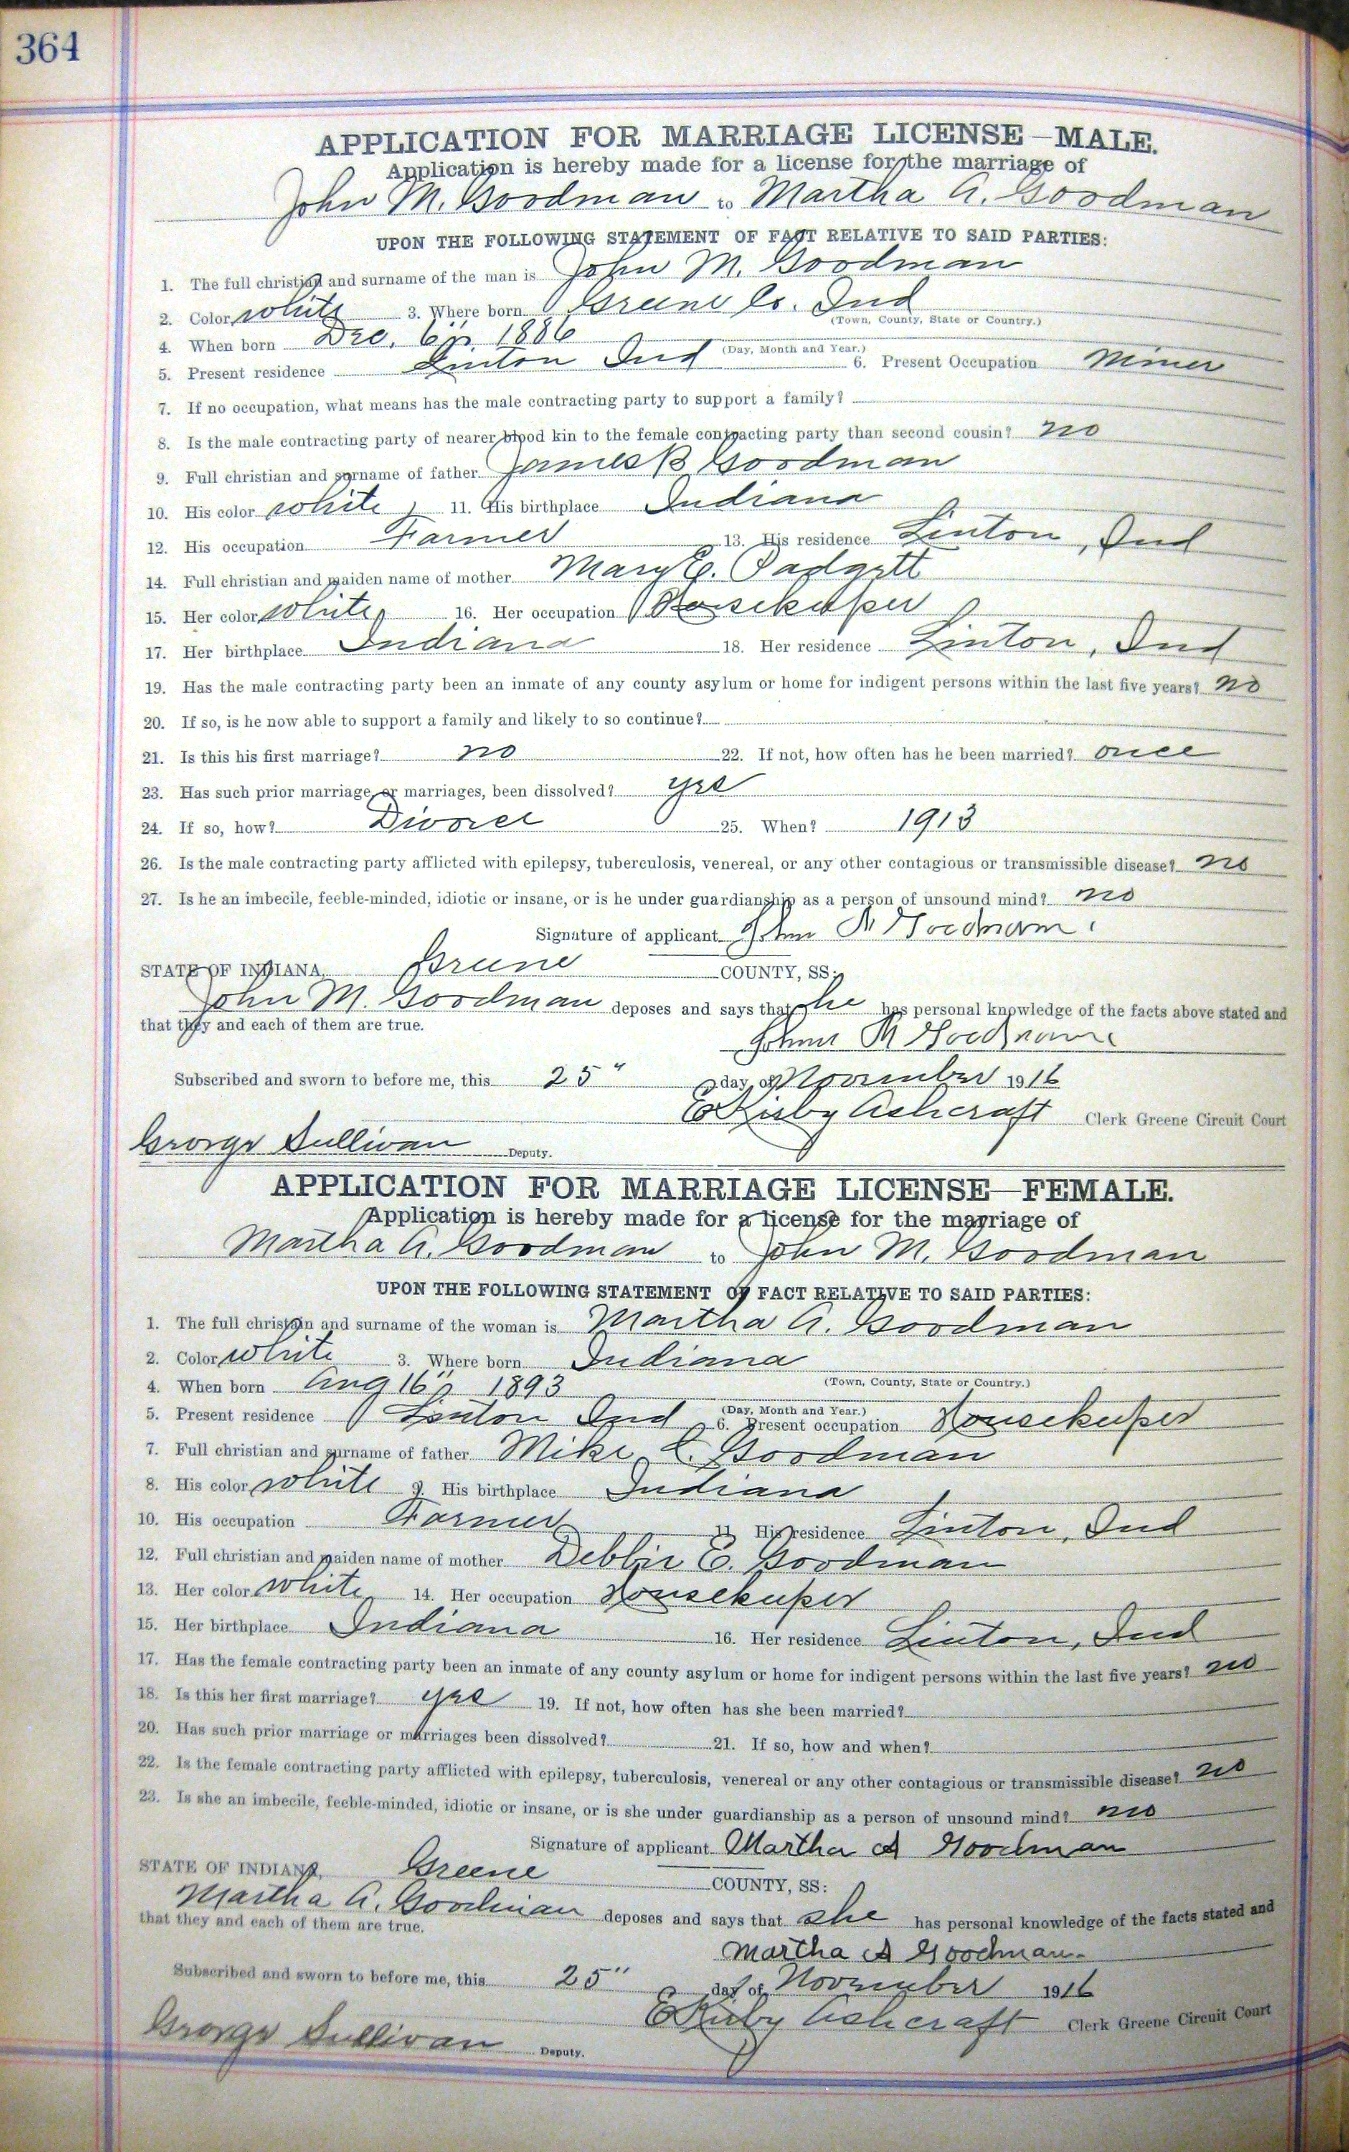 364
APPLICATION FOR MARRIAGE LICENSE—MALE.
Application is hereby made for a license for the marriage of
John M. Goodman to Martha A. Goodman
UPON THE FOLLOWING STATEMENT OF FACT RELATIVE TO SAID PARTIES:
1. The full christian and surname of the man is John M. Goodman
2. Color white 3. Where born Greene Co. Ind
(Town, County, State or Country.)
4. When born Dec. 6" 1886
(Day, Month and Year.)
5. Present residence Linton Ind 6. Present Occupation Miner
7. If no occupation, what means has the male contracting party to support a family?
8. Is the male contracting party of nearer blood kin to the female contracting party than second cousin? no
9. Full christian and surname of father James B Goodman
10. His color white 11. His birthplace Indiana
12. His occupation Farmer 13. His residence Linton, Ind
14. Full christian and maiden name of mother Mary E. Padgett
15. Her color white 16. Her occupation Housekeeper
17. Her birthplace Indiana 18. Her residence Linton, Ind
19. Has the male contracting party been an inmate of any county asylum or home for indigent persons within the last five years? no
20. If so, is he now able to support a family and likely to so continue?
21. Is this his first marriage? no 22. If not, how often has he been married? once
23. Has such prior marriage, or marriages, been dissolved? yes
24. If so, how? Divorce 25. When? 1913
26. Is the male contracting party afflicted with epilepsy, tuberculosis, venereal, or any other contagious or transmissible disease? no
27. Is he an imbecile, feeble-minded, idiotic or insane, or is he under guardianship as a person of unsound mind? no
Signature of applicant John M Goodman
STATE OF INDIANA, Greene COUNTY, SS:
John M. Goodman deposes and says that he has personal knowledge of the facts above stated and
that they and each of them are true.
John M Goodman
Subscribed and sworn to before me, this 25" day of November 1916
E Kirby Ashcraft Clerk Greene Circuit Court
George Sullivan Deputy.
APPLICATION FOR MARRIAGE LICENSE—FEMALE.
Application is hereby made for a license for the marriage of
Martha A. Goodman to John M. Goodman
UPON THE FOLLOWING STATEMENT OF FACT RELATIVE TO SAID PARTIES:
1. The full christian and surname of the woman is Martha A. Goodman
2. Color white 3. Where born Indiana
(Town, County, State or Country.)
4. When born Aug 16" 1893
(Day, Month and Year.)
5. Present residence Linton Ind 6. Present occupation Housekeeper
7. Full christian and surname of father Mike C. Goodman
8. His color white 9. His birthplace Indiana
10. His occupation Farmer 11. His residence Linton, Ind
12. Full christian and maiden name of mother Debbie E. Goodman
13. Her color white 14. Her occupation Housekeeper
15. Her birthplace Indiana 16. Her residence Linton, Ind
17. Has the female contracting party been an inmate of any county asylum or home for indigent persons within the last five years? no
18. Is this her first marriage? yes 19. If not, how often has she been married?
20. Has such prior marriage or marriages been dissolved? 21. If so, how and when?
22. Is the female contracting party afflicted with epilepsy, tuberculosis, venereal or any other contagious or transmissible disease? no
23. Is she an imbecile, feeble-minded, idiotic or insane, or is she under guardianship as a person of unsound mind? no
Signature of applicant Martha A Goodman
STATE OF INDIANA, Greene COUNTY, SS:
Martha A. Goodman deposes and says that she has personal knowledge of the facts stated and
that they and each of them are true.
Martha A Goodman
Subscribed and sworn to before me, this 25" day of November 1916
E Kirby Ashcraft Clerk Greene Circuit Court
George Sullivan Deputy.